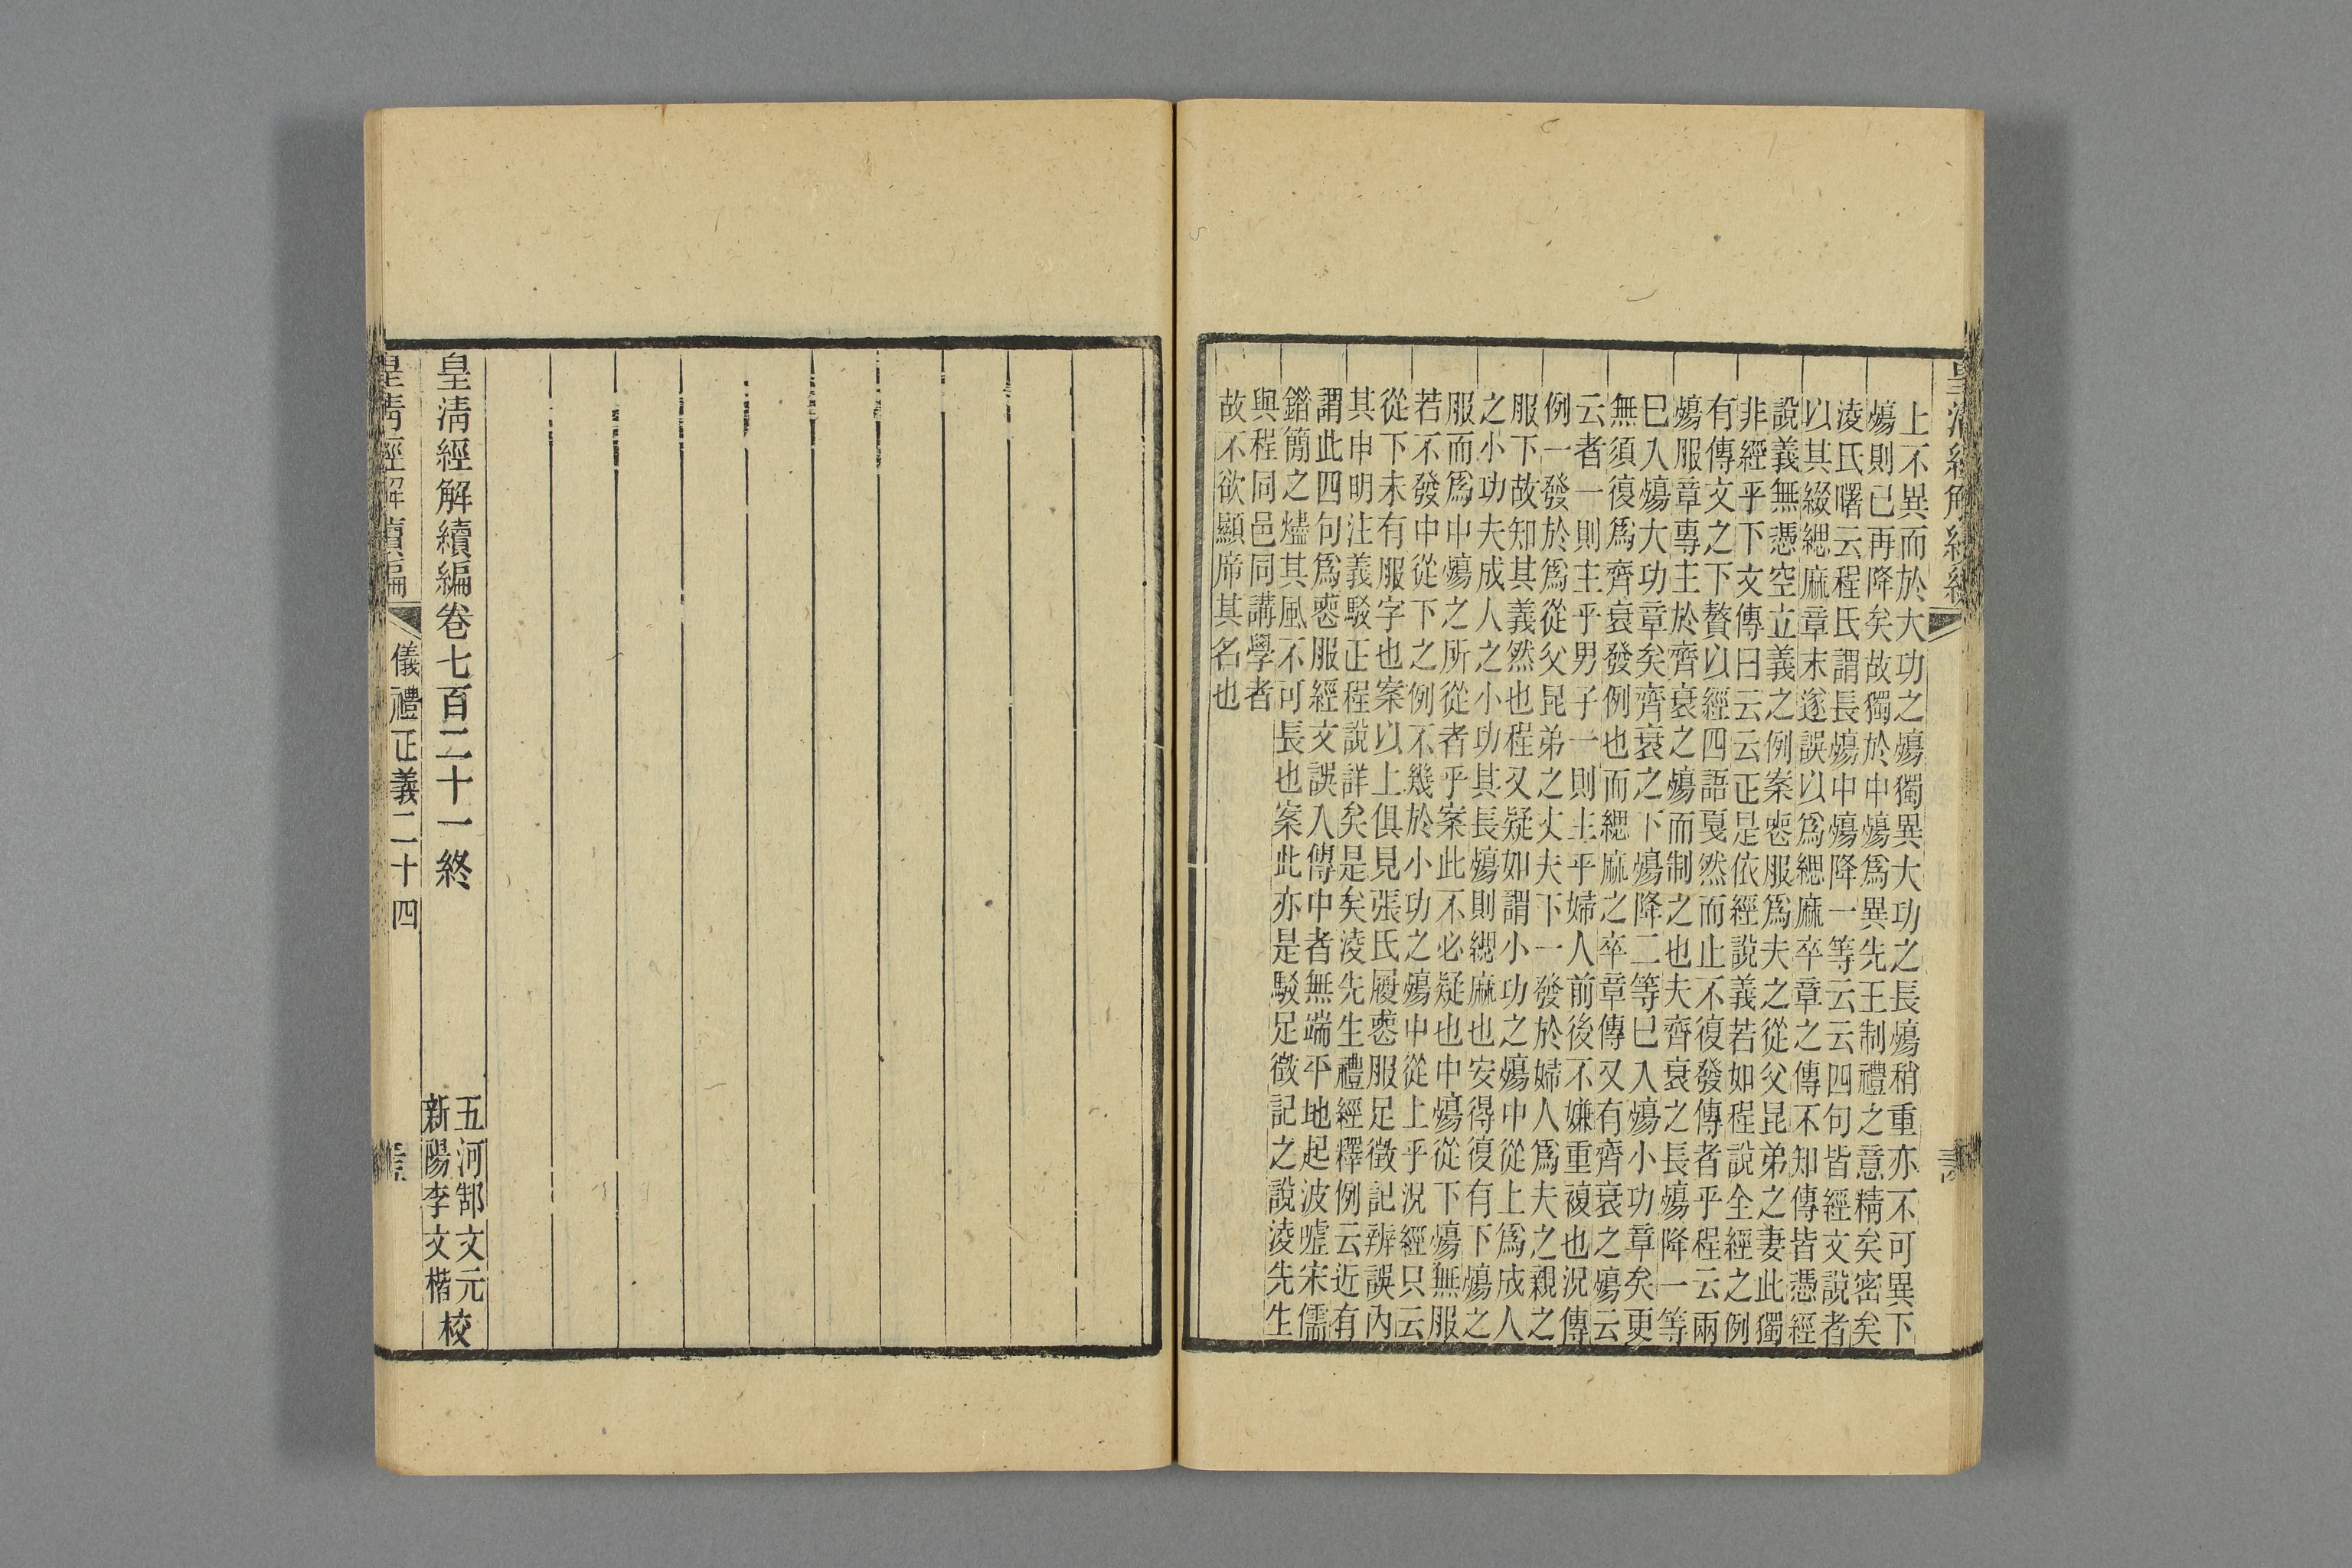 上不異而於大功之殤獨異大功之長殤稍重亦不可異下
殤則已再降矣故獨於中殤爲異先王制禮之意精矣密矣
淩氏曙云程氏謂長殤中殤降一等云云四句皆經文說者
以其綴緦麻章末遂誤以爲緦麻卒章之傳不知傳皆憑經
說義無憑空立義之例案喪服爲夫之從父昆弟之妻此獨
非經乎下文傳曰云云正是依經說義若如程說全經之例
有傳文之下贅以經四語戛然而止不復發傳者乎程云兩
殤服章專主於齊衰之殤而制之也夫齊衰之長殤降一等
巳入殤大功章矣齊衰之下殤降二等巳入殤小功章矣更
無須復爲齊衰發例也而緦麻之卒章傳又有齊衰之殤云
云者一則主乎男子一則主乎婦人前後不嫌重複也況傳
例一發於爲從父昆弟之丈夫下一發於婦人爲夫之親之
服下故知其義然也程又疑如謂小功之殤中從上爲成人
之小功夫成人之小功其長殤則緦麻也安得復有下殤之
服而爲中殤之所從者乎案此不必疑也中殤從下殤無服
若不發中從下之例不幾於小功之殤中從上乎況經只云
從下未有服字也案以上俱見張氏履喪服足徵記辨誤內
其申明注義駁正程說詳矣是矣淩先生禮經釋例云近有
謂此四句爲喪服經文誤入傳中者無端平地起波嘘宋儒
鍇簡之燼其風不可長也案此亦是駁足徵記之說淩先生
與程同邑同講學者
故不欲顯席其名也
皇清經解續編卷七百二十一終
五河郜文元
新陽李文楷
校
皇清經解續編
儀禮正義二十四